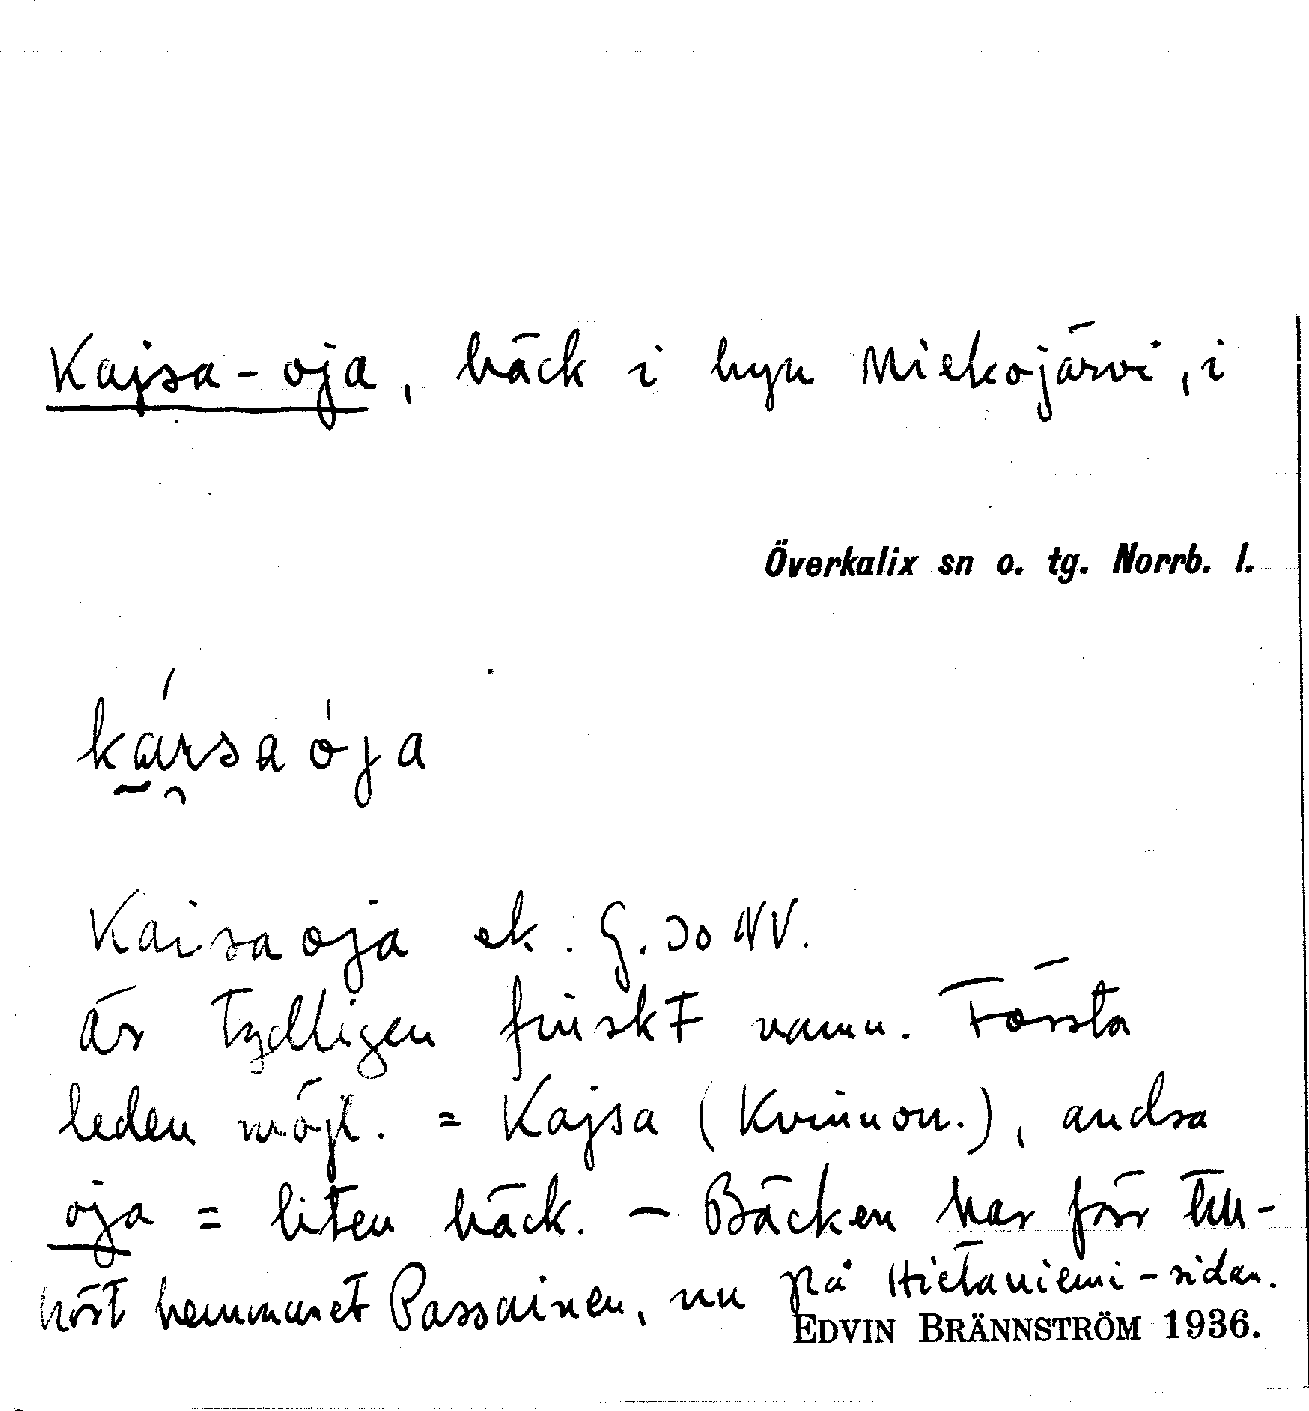 Kajsa-oja, bäck i byn Miekojärvi, i
Överkalix sn o. tg. Norrb. l.
Kaisaoja ek. G. 30 NV.
är tydligen finskt namn. Första
leden möjl. = Kajsa (Kvinnon.), andra
oja = liten bäck. — Bäcken har förr till-
hört hemmanet Passainen, nu på Hietaniemi-sidan.
EDVIN BRÄNNSTRÖM 1936.